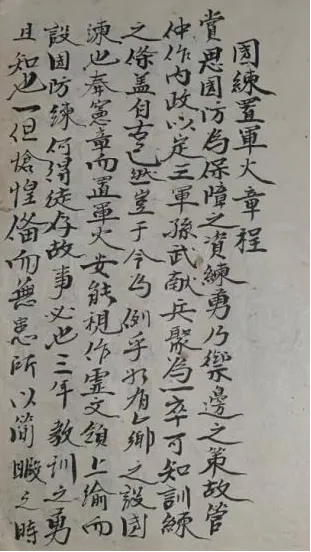 團練置軍火章程
嘗思團防為保障之資練勇乃禦邊之策故管
仲作內政以定三軍孫武献兵聚為一卒可知訓練
之條盖自古已然豈于今為例乎如有乡之設团
練也奉憲章而置軍火安能視作霊文領上諭而
設团防練何得徒存故事必也三年教訓之勇
且知也一但愴惶俻而無患所以簡暇之時